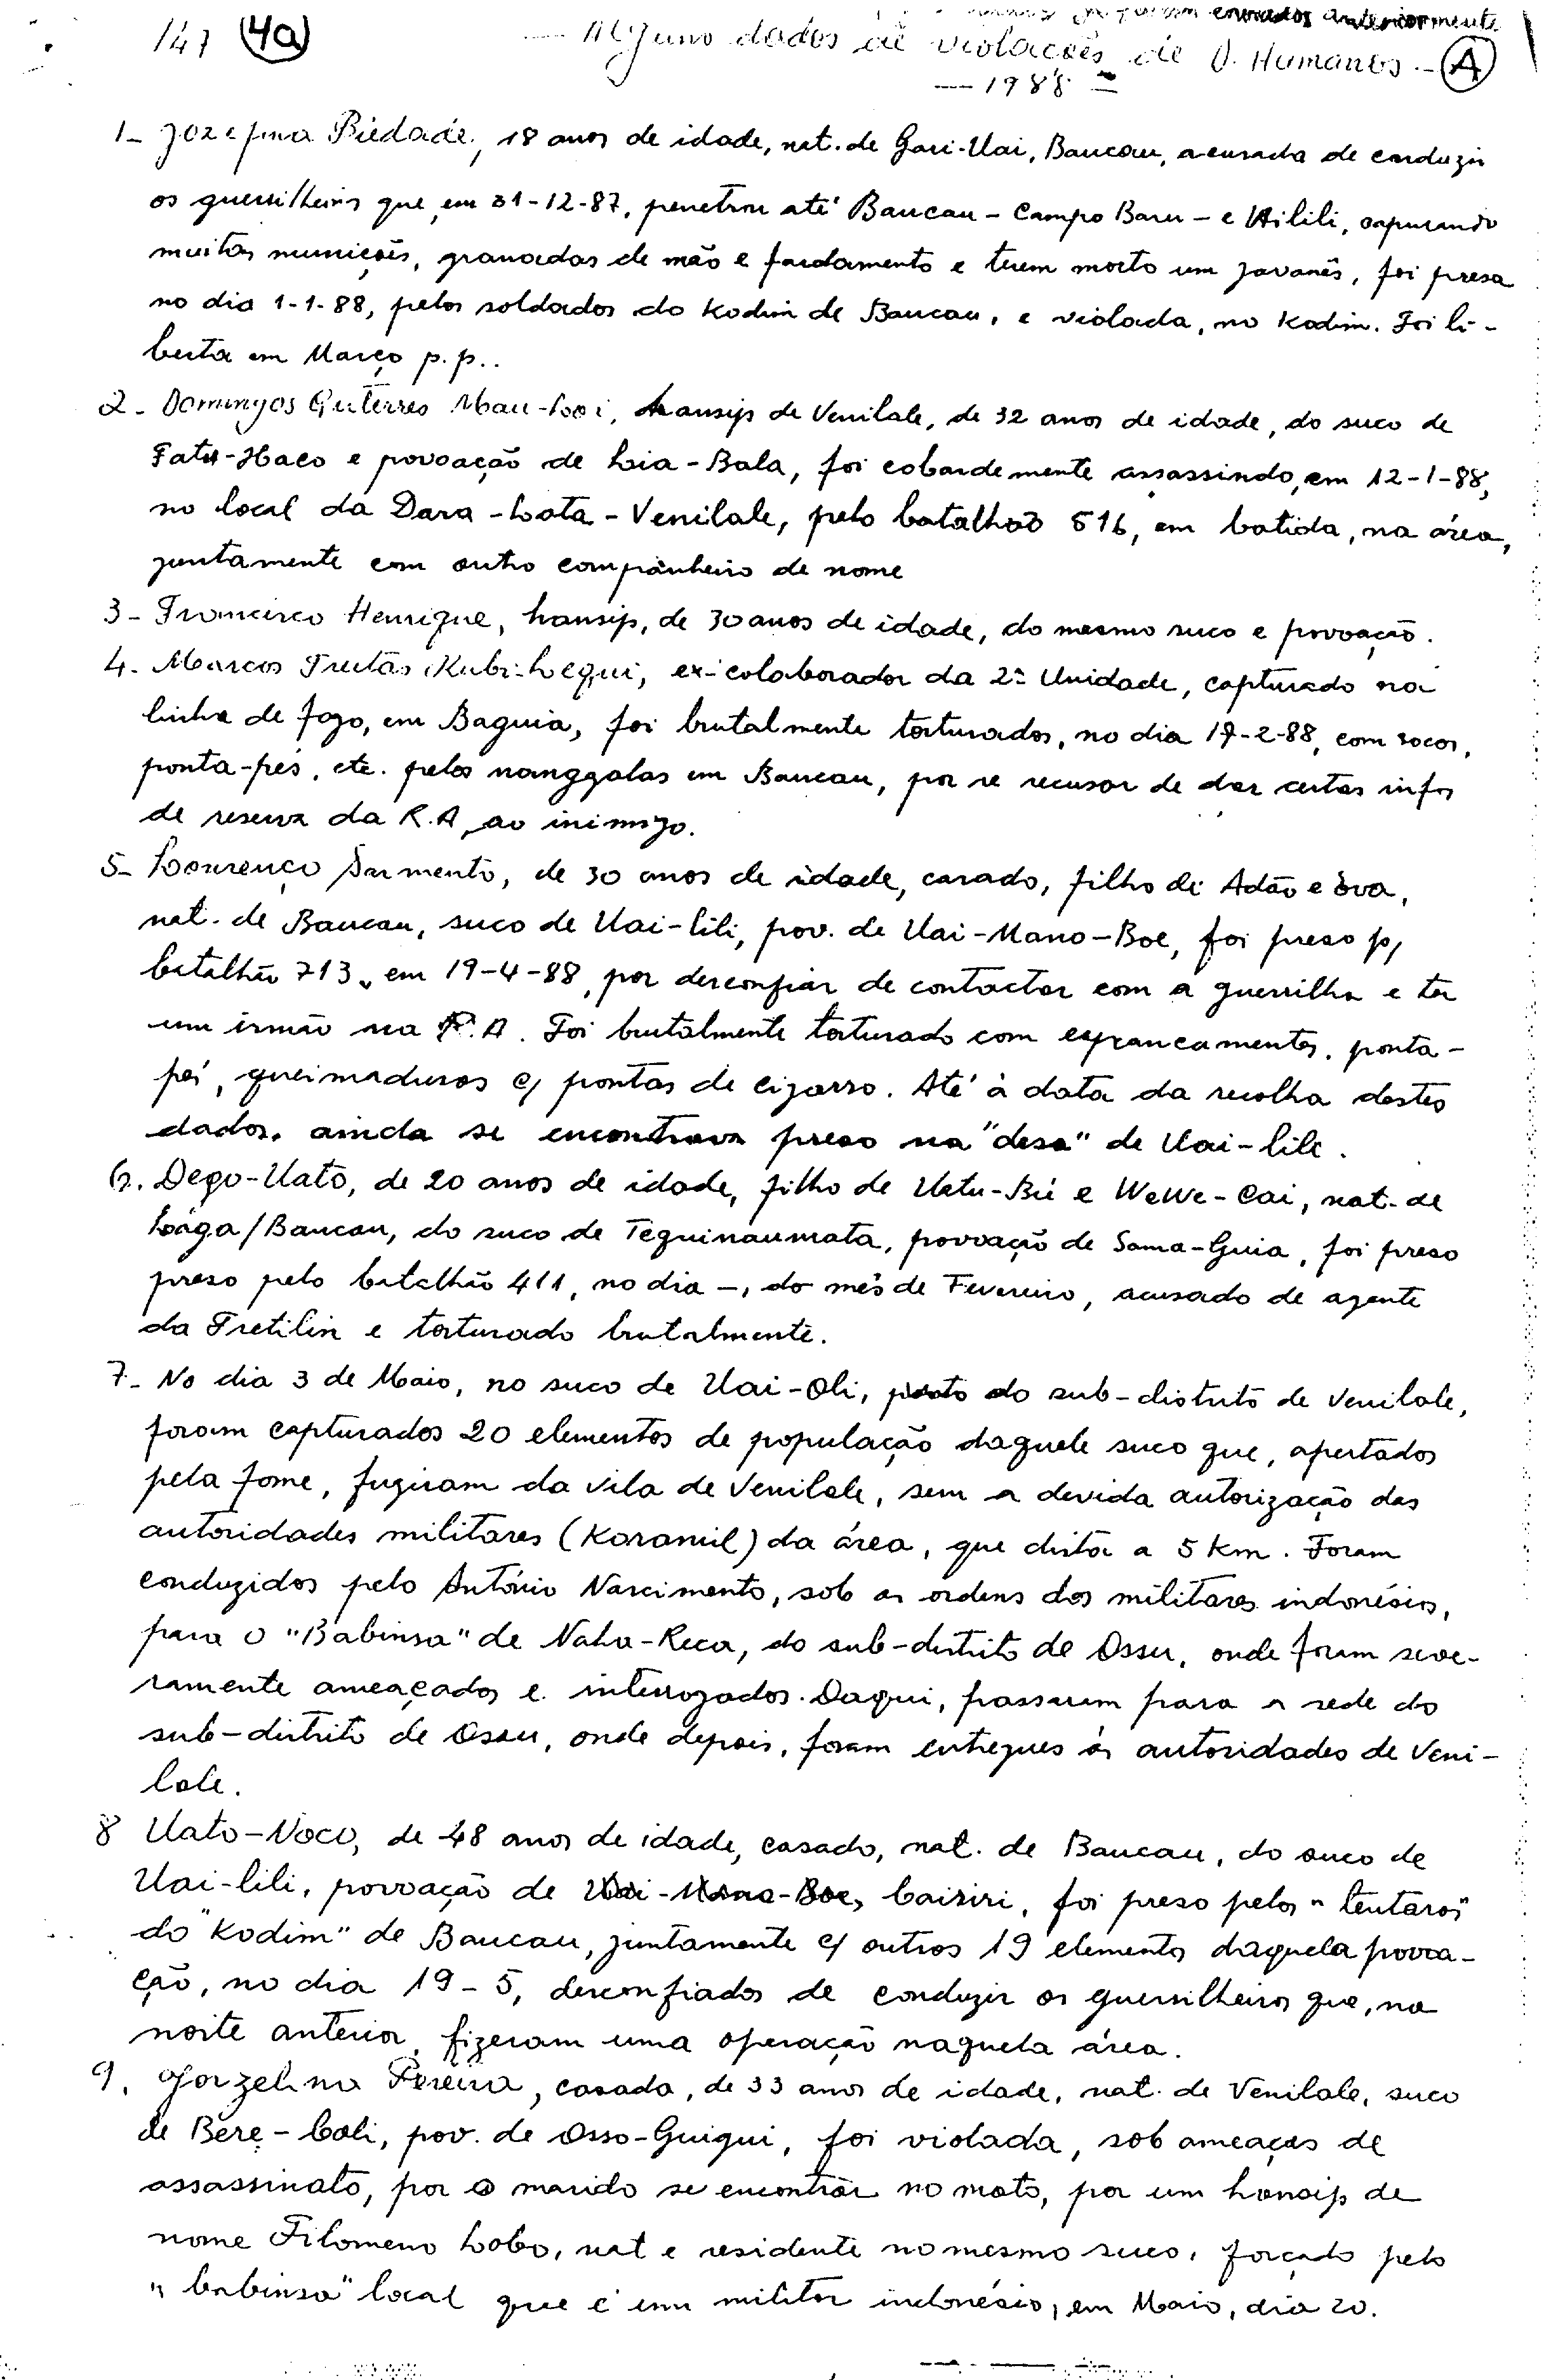 enviados anteriormente
147 (4a)
— Alguns dados de violações de D. Humanos. - (A)
— 1988 —
1- Jozefina Piedade, 18 anos de idade, nat. de Gari-Uai, Baucau, acusada de conduzir
os guerrilheiros que, em 31-12-87, penetrou até Baucau - Campo Baru - e Uilili, capurando
muitas munições, granadas de mão e fardamento e terem morto um javanês, foi presa
no dia 1-1-88, pelos soldados do Kodim de Baucau, e violada, no Kodim. Foi li-
berta em Março p.p..
2- Domingos Guterres Mau-Loi, hansip de Venilale, de 32 anos de idade, do suco de
Fatu-Haco e povoação de Lia-Bala, foi cobardemente assassindo, em 12-1-88,
no local da Dara-Lata - Venilale, pelo batalhão 516, em batida, na área,
juntamente com outro companheiro de nome
3- Francisco Henrique, hansip, de 30 anos de idade, do mesmo suco e povoação.
4. Marcos Freitas Kubi-Lequi, ex-colaborador da 2ª Unidade, capturado na
linha de fogo, em Baguia, foi brutalmente torturados, no dia 17-2-88, com socos,
ponta-pés, etc. pelos nanggalas em Baucau, por se recusar de dar certas infos
de reserva da R.A, ao inimigo.
5- Lourenço Sarmento, de 30 anos de idade, casado, filho de Adão e Eva,
nat. de Baucau, suco de Uai-lili, pov. de Uai-Mano-Boe, foi preso p/
batalhão 713, em 19-4-88, por desconfiar de contactar com a guerrilha e ter
um irmão na R.A. Foi brutalmente torturado com espancamentos, ponta-
pé, queimaduras c/ pontas de cigarro. Até à data da recolha destes
dados, ainda se encontrava preso na "desa" de Uai-lili.
6. Dego-Uato, de 20 anos de idade, filho de Uatu-Bú e WeWe-Cai, nat. de
Lága/Baucau, do suco de Tequinaumata, povoação de Sama-Guia, foi preso
preso pelo batalhão 411, no dia -, do mês de Fevereiro, acusado de agente
da Fretilin e torturado brutalmente.
7- No dia 3 de Maio, no suco de Uai-Oli, posto do sub-distrito de Venilale,
foram capturados 20 elementos de população daquele suco que, apertados
pela fome, fugiram da vila de Venilale, sem a devida autorização das
autoridades militares (Koramil) da área, que dista a 5 km. Foram
conduzidos pelo António Nascimento, sob as ordens dos militares indonésios,
para o "Babinsa" de Naha-Reca, do sub-distrito de Ossu, onde foram seve-
ramente ameaçados e interrogados. Daqui, passaram para a sede do
sub-distrito de Ossu, onde depois, foram entregues às autoridades de Veni-
lale.
8 Uato-Noco, de 48 anos de idade, casado, nat. de Baucau, do suco de
Uai-lili, povoação de Uai-Mano-Boe, Caisiri, foi preso pelos "tentaras"
do "Kodim" de Baucau, juntamente c/ outros 19 elementos daquela povoa-
ção, no dia 19-5, desconfiados de conduzir os guerrilheiros que, na
noite anterior, fizeram uma operação naquela área.
9. Jorzelina Pereira, casada, de 33 anos de idade, nat. de Venilale, suco
de Bere-Coli, pov. de Osso-Guigui, foi violada, sob ameaças de
assassinato, por o marido se encontrar no mato, por um hansip de
nome Filomeno Lobo, nat e residente no mesmo suco, forçado pelo
"babinsa" local que é um militar indonésio, em Maio, dia 20.